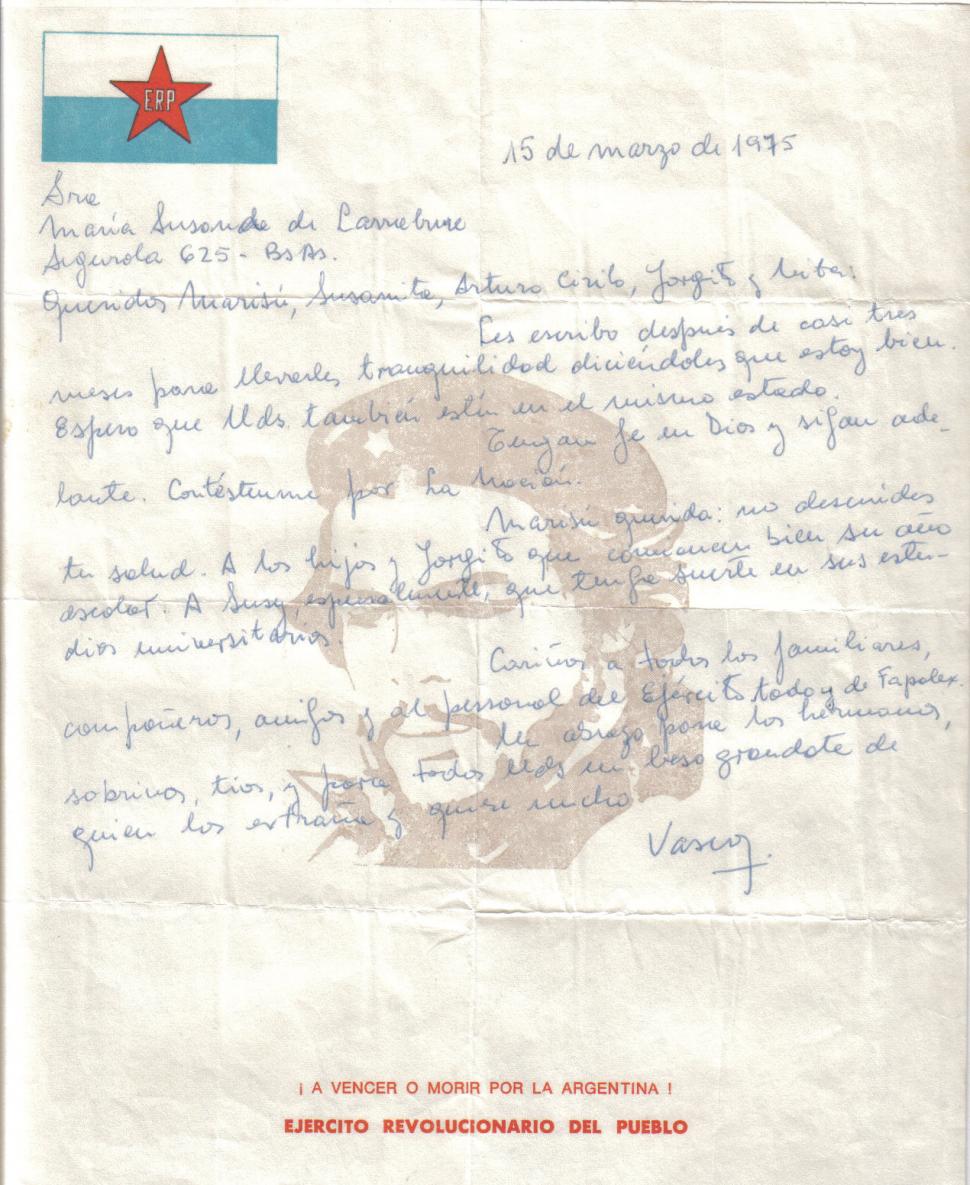 ERP
15 de marzo de 1975
Sra
María Susana de Larrabure
Segurola 625 - BsAs.
Queridos Marisú, Susanita, Arturo Cirilo, Jorgito y
Les escribo después de casi tres
meses para llevarles tranquilidad diciéndoles que estoy bien.
Espero que Uds. también estén en el mismo estado.
Tengan fe en Dios y sigan ade-
lante. Contéstenme por La Nación.
Marisú querida: no descuides
tu salud. A los hijos y Jorgito que comiencen bien su año
escolar. A Susy, especialmente, que tenga suerte en sus estu-
dios universitarios.
Cariños a todos los familiares,
compañeros, amigos y al personal del Ejército todo y de Fapolex.
Un abrazo para los hermanos,
sobrinos, tíos, y para todos Uds un beso grandote de
quien los extraña y quiere mucho
Vasco
¡ A VENCER O MORIR POR LA ARGENTINA !
EJERCITO REVOLUCIONARIO DEL PUEBLO